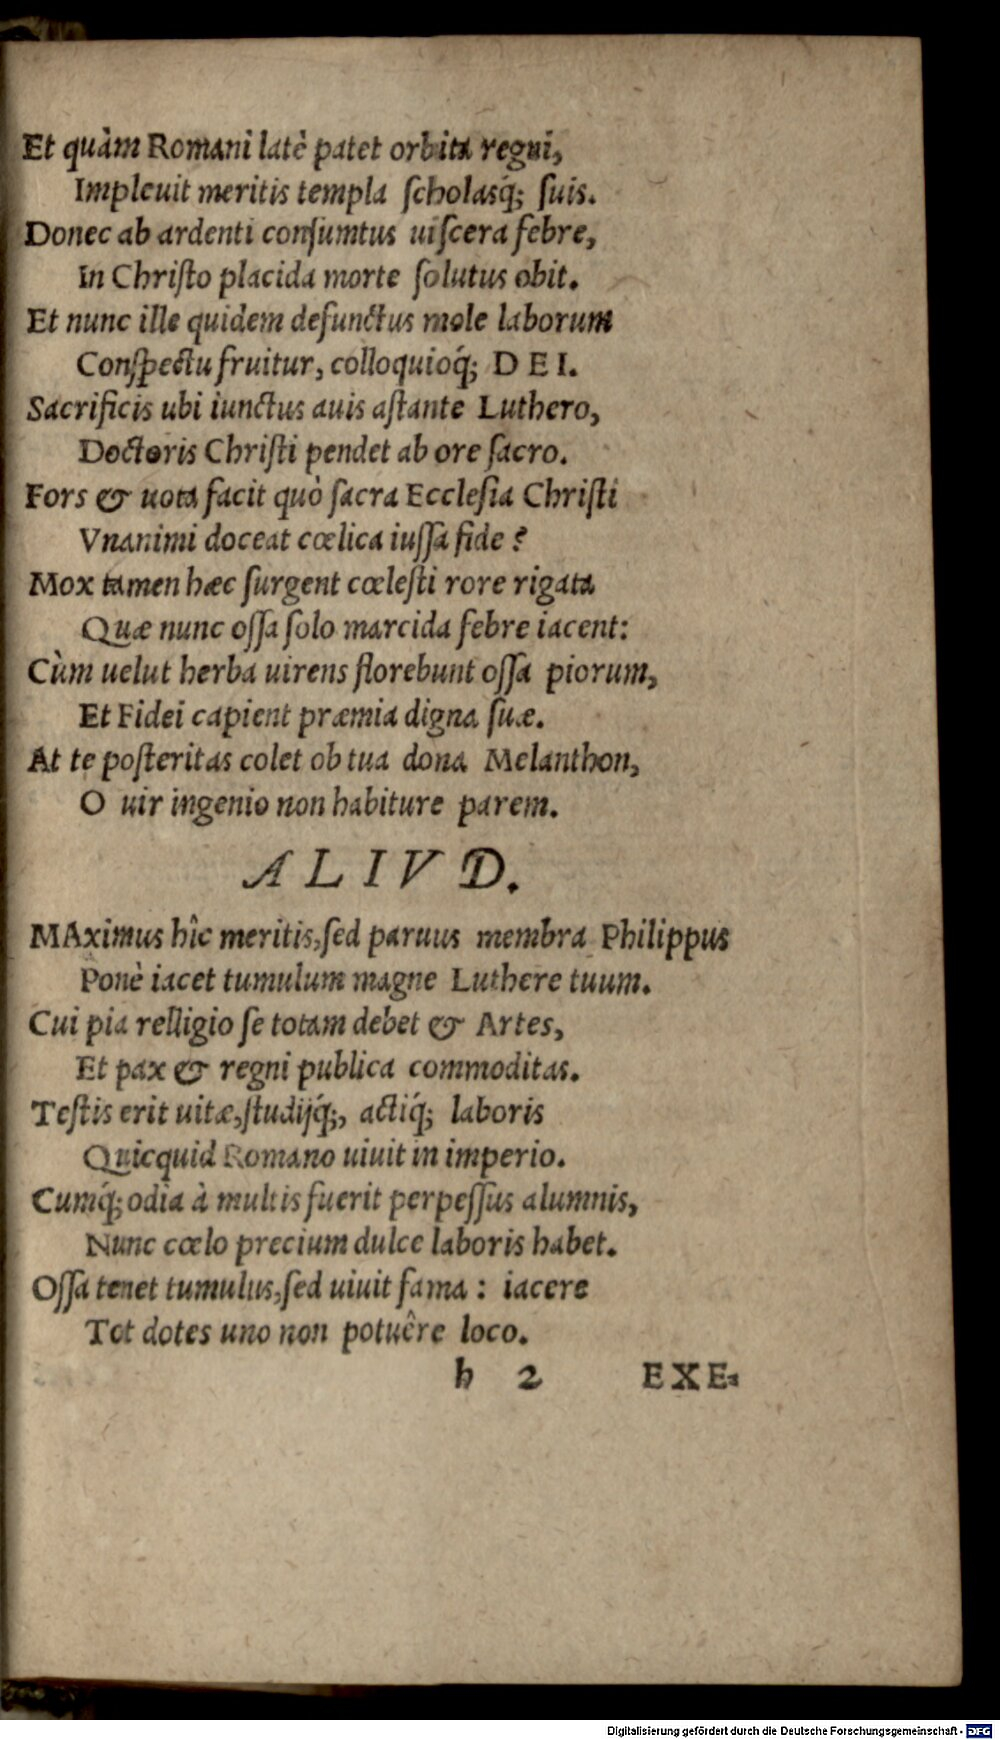 Et quàm Romani latè patet orbita regni,
Impleuit meritis templa ſcholasq́; ſuis.
Donec ab ardenti conſumtus uiſcera febre,
In Chriſto placida morte ſolutus obit.
Et nunc ille quidem defunctus mole laborum
Conſpectu fruitur, colloquioq́; D E I.
Sacrificis ubi iunctus auis aſtante Luthero,
Doctoris Chriſti pendet ab ore ſacro.
Fors & uota facit quò ſacra Eccleſia Chriſti
Vnanimi doceat cœlica iuſſa fide?
Mox tamen hæc ſurgent cœleſti rore rigata
Quæ nunc oſſa ſolo marcida febre iacent:
Cùm uelut herba uirens florebunt oſſa piorum,
Et Fidei capient præmia digna ſuæ.
At te poſteritas colet ob tua dona Melanthon,
O uir ingenio non habiture parem.
A L I V D.
MAximus hîc meritis,ſed paruus membra Philippus
Ponè iacet tumulum magne Luthere tuum.
Cui pia relligio ſe totam debet & Artes,
Et pax & regni publica commoditas.
Teſtis erit uitæ,ſtudijq́;, actiq́; laboris
Quicquid Romano uiuit in imperio.
Cumq́; odia à multis fuerit perpeſſus alumnis,
Nunc cœlo precium dulce laboris habet.
Oſſa tenet tumulus,ſed uiuit fama : iacere
Tot dotes uno non potuêre loco.
h 2 EXE-
Digitalisierung gefördert durch die Deutsche Forschungsgemeinschaft - DFG